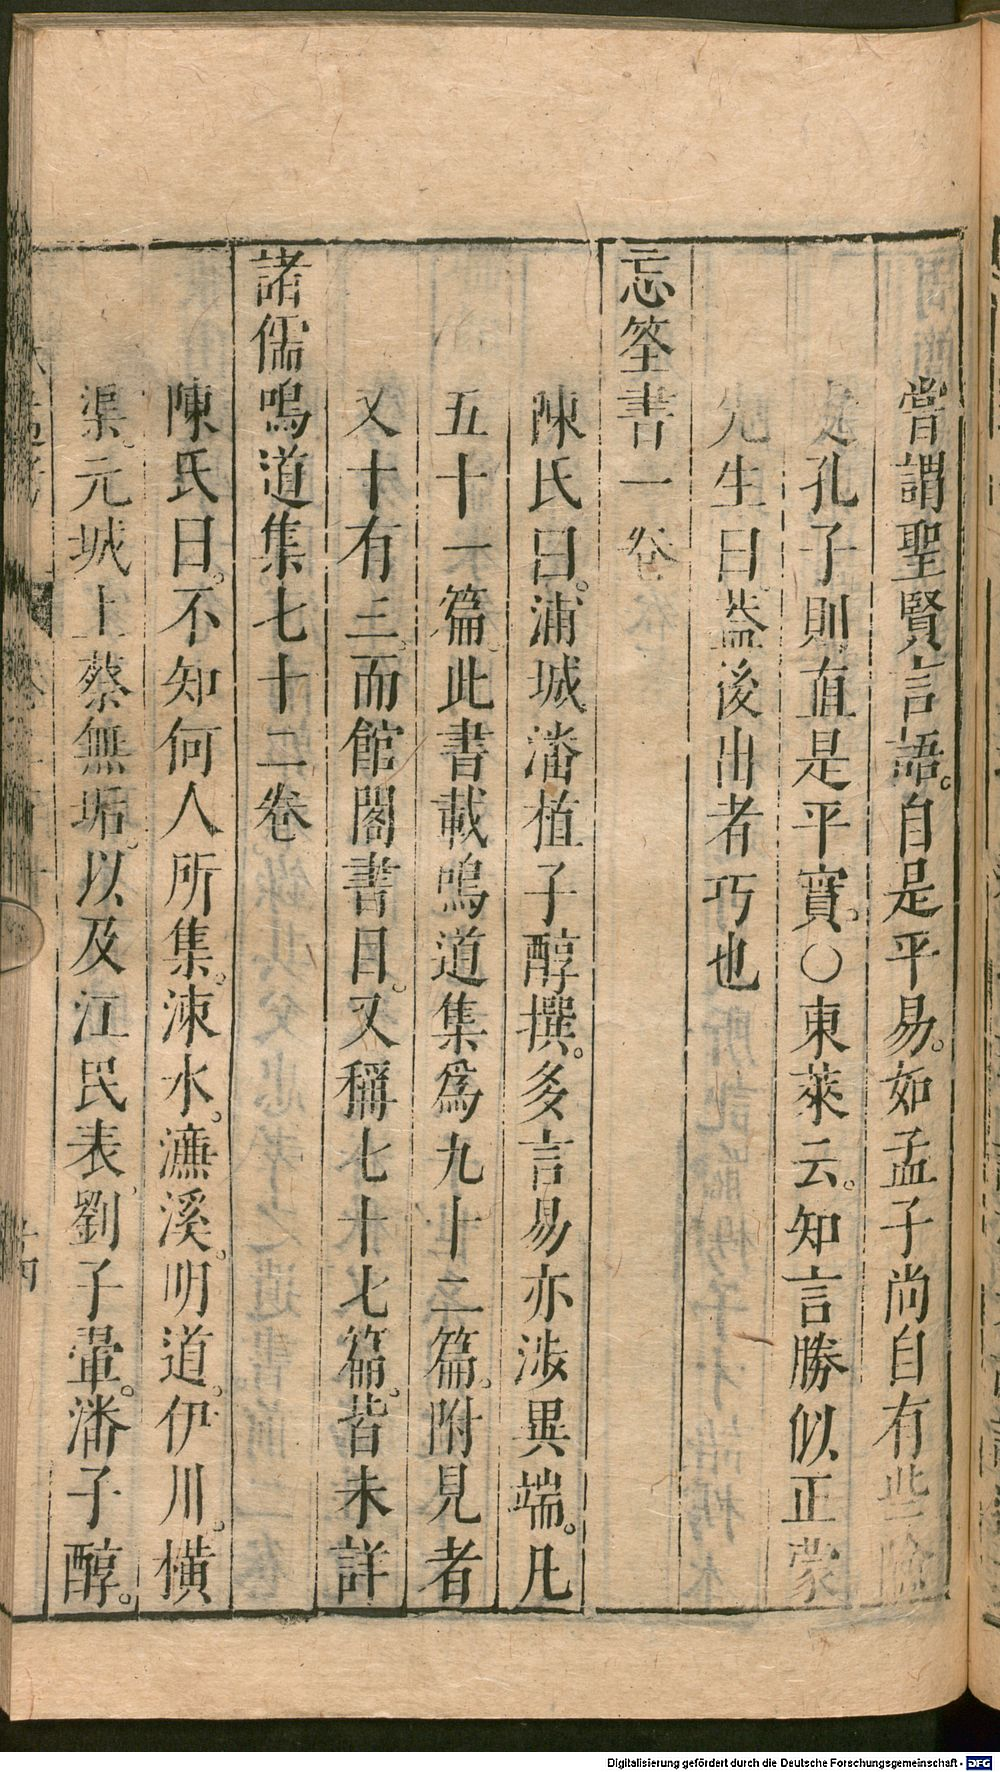 嘗謂聖賢言語。自是平易。如孟子尚自有些險
處孔子則直是平實。○東萊云。知言勝似正蒙
先生曰。葢後出者巧也
忘筌書一卷
陳氏曰。浦城潘植子醇撰。多言易亦涉異端。凡
五十一篇。此書載鳴道集爲九十二篇。附見者
又十有三。而館閣書目。又稱七十七篇。皆未詳
諸儒鳴道集七十二卷
陳氏曰。不知何人所集。涑水。濂溪。明道。伊川。橫
渠。元城上蔡無垢。以及江民表。劉子翬。潘子醇。
Digitalisierung gefördert durch die Deutsche Forschungsgemeinschaft - DFG